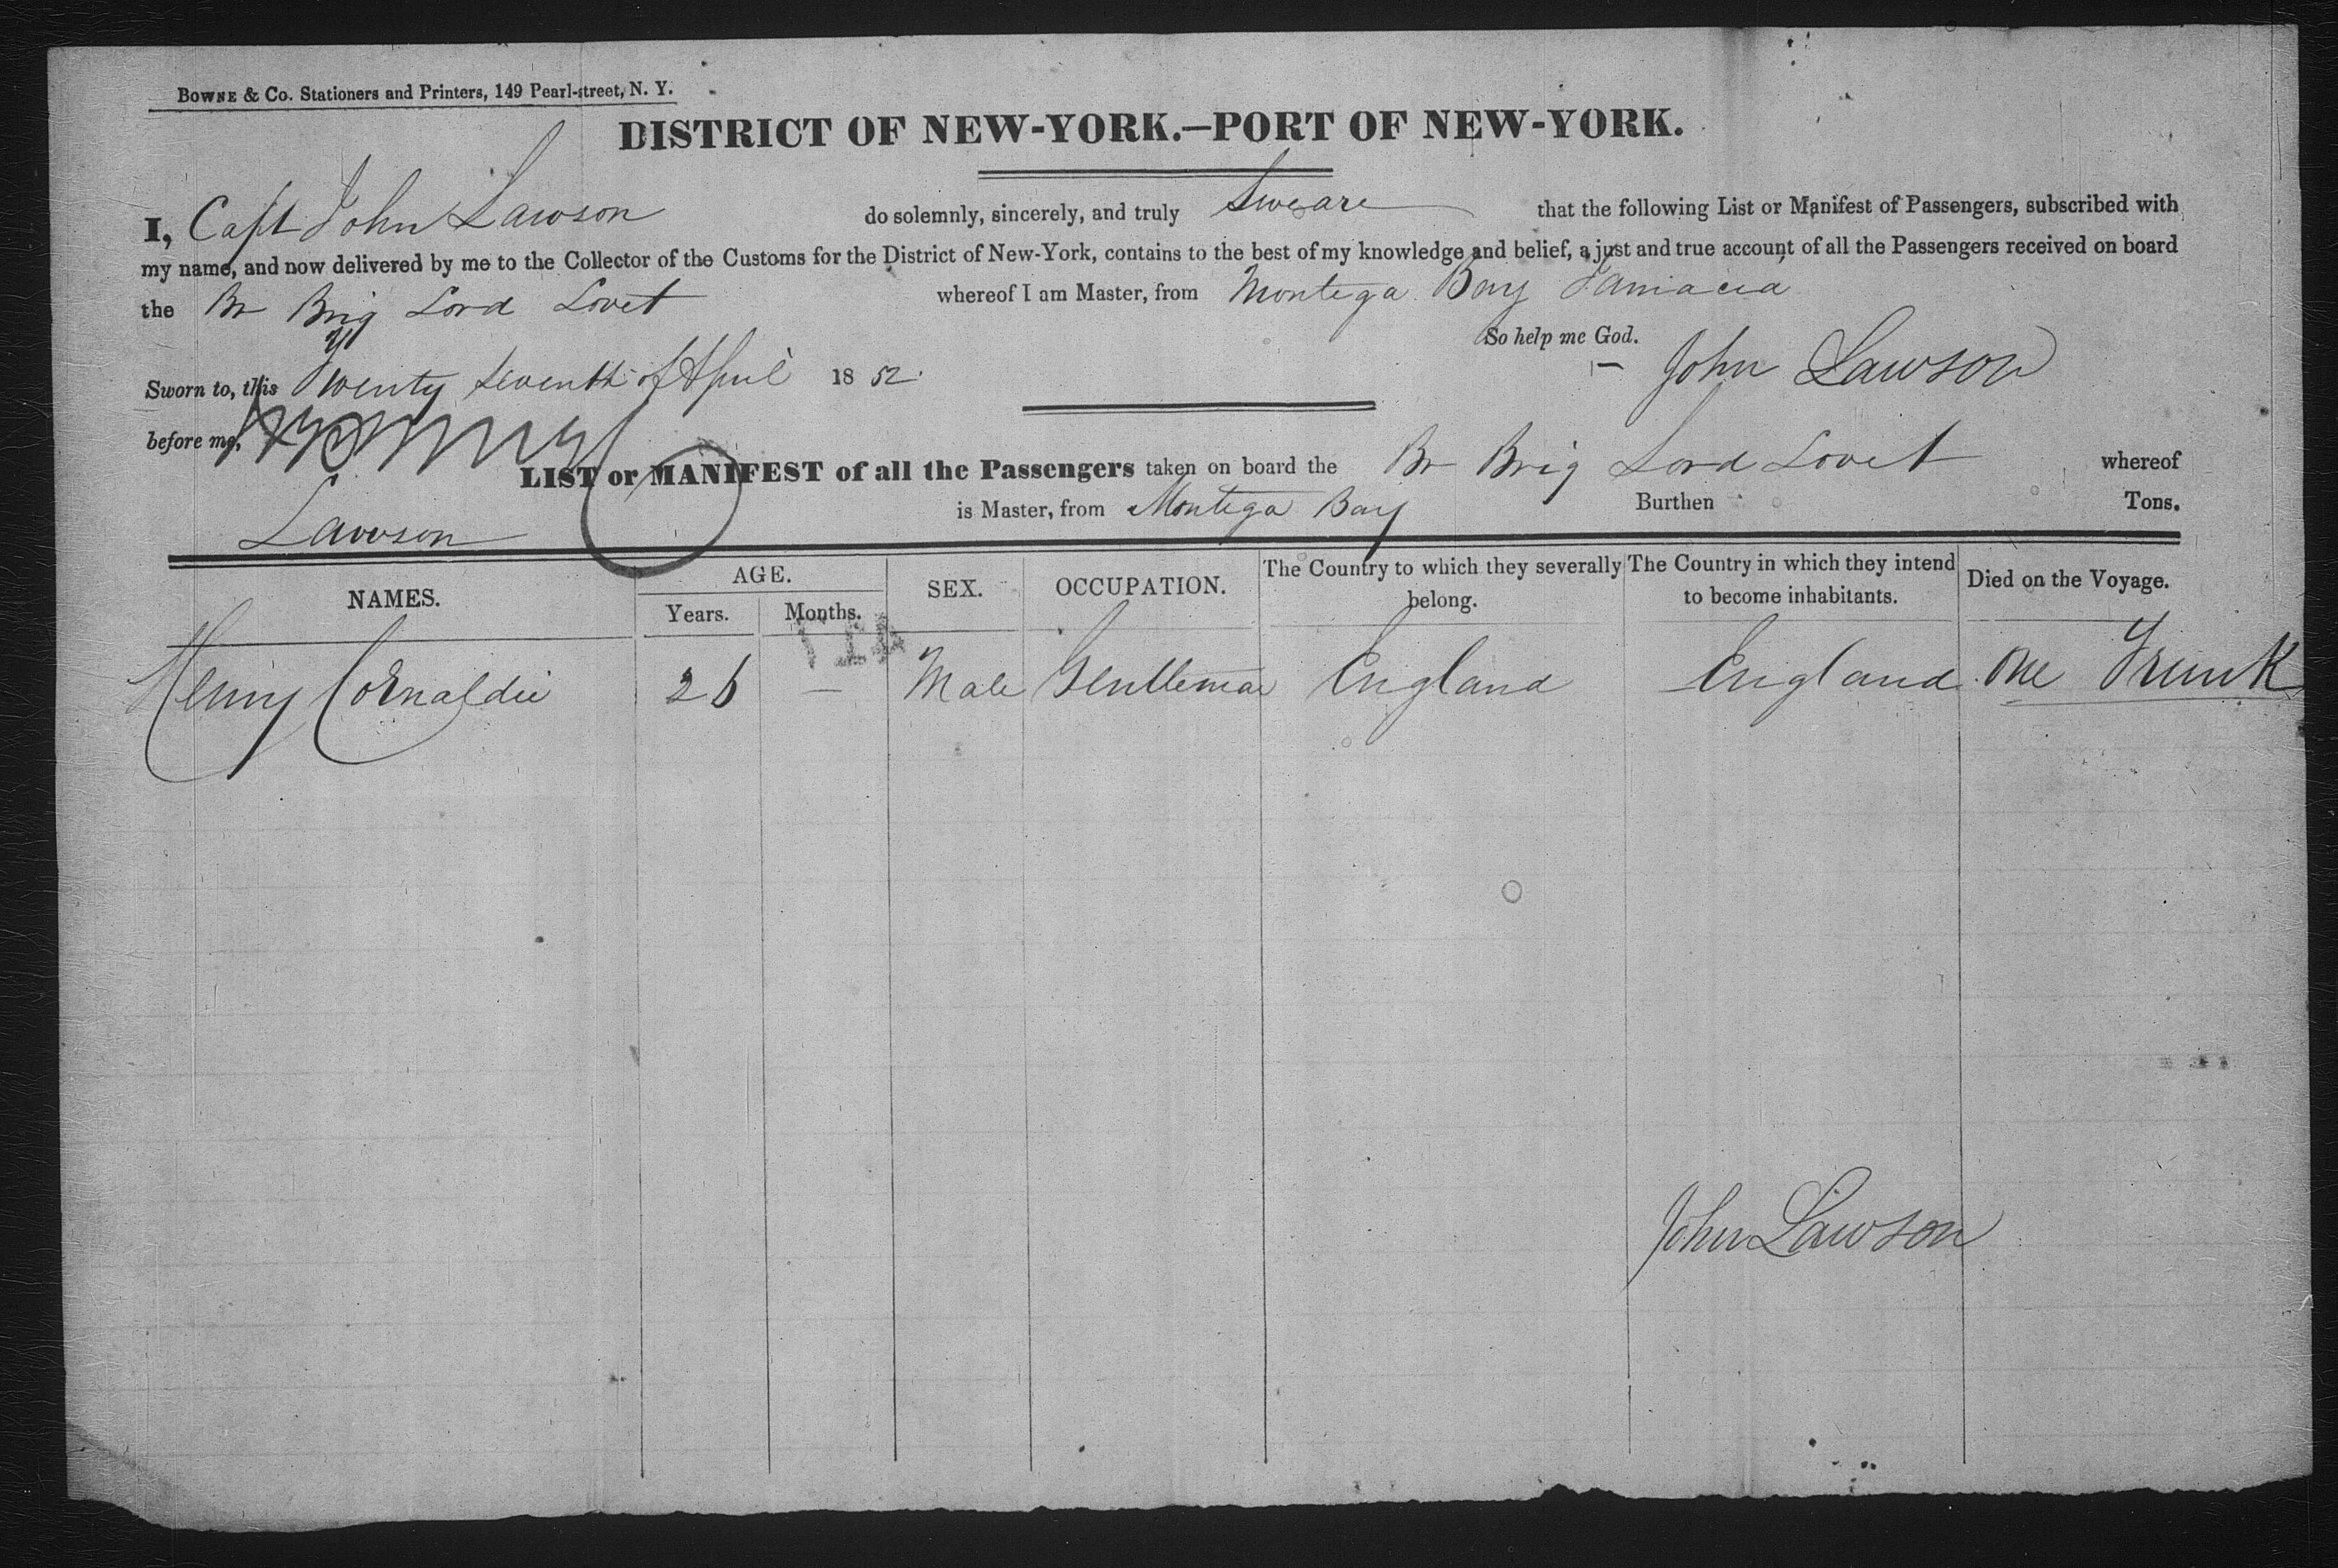 BOWNE & Co. Stationers and Printers, 149 Pearl-street, N. Y.
DISTRICT OF NEW-YORK.—PORT OF NEW-YORK.
I, Capt John Lawson do solemnly, sincerely, and truly Sweare that the following List or Manifest of Passengers, subscribed with
my name, and now delivered by me to the Collector of the Customs for the District of New-York, contains to the best of my knowledge and belief, a just and true account of all the Passengers received on board
the Br Brig Lord Lovet whereof I am Master, from Montega Bay Jamacia
So help me God.
Sworn to, this Twenty seventh of April 18 52. John Lawson
before me,
LIST or MANIFEST of all the Passengers taken on board the Br Brig Lord Lovet whereof
Lawson is Master, from Montega Bay Burthen Tons.
NAMES. AGE. Years. Months. SEX. OCCUPATION. The Country to which they severally belong. The Country in which they intend to become inhabitants. Died on the Voyage.
Henry 26 — Male Gentleman England England. One Trunk
John Lawson